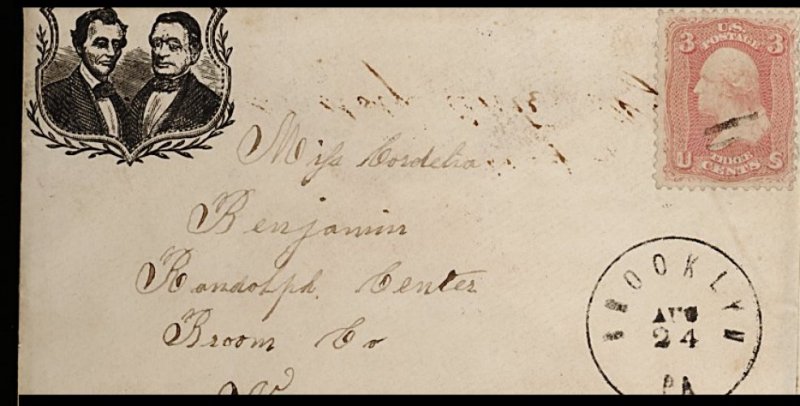 U.S.
POSTAGE
3 3
U THREE S
CENTS
Miss Cordelia
Benjamin
Randolph Center
Broom Co
BROOKLYN
AUG
24
PA